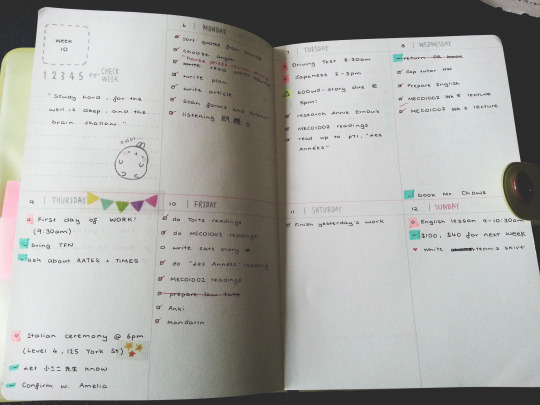 WEEK
10
1 2 3 4 5 CHECK
WEEK
"Study hard, for the
well is deep, and the
brain shallow."
6 | MONDAY
sort quotes from
choose angle
read other
write plan
write article
scan forms and
listening
7 | TUESDAY
Driving test 8:30am
Japanese 2-3pm
600wd story due @
5pm!
research Annie Ernaux
MECO1002 readings
read up to p71, "Les
Années"
8 | WEDNESDAY
return book
Prepare English
MECO1002 Wk 5 lecture
MECO1003 Wk 5 lecture
book Mr. Chows
9 | THURSDAY
First day of WORK!
(9:30am)
bring TFN
ask about RATES + TIMES
Italian ceremony @ 6pm
(Level 4, 125 York St)
Let 小 先生 know
Confirm w. Amelia
10 | FRIDAY
do Torts readings
do MECO1003 readings
write cats story
do "Les Années" reading
MECO1002 readings
prepare law
Anki
Mandarin
11 | SATURDAY
Finish yesterday's work
12 | SUNDAY
English lesson 9-10:30am
$100, $40 for next week
white tennis skirt